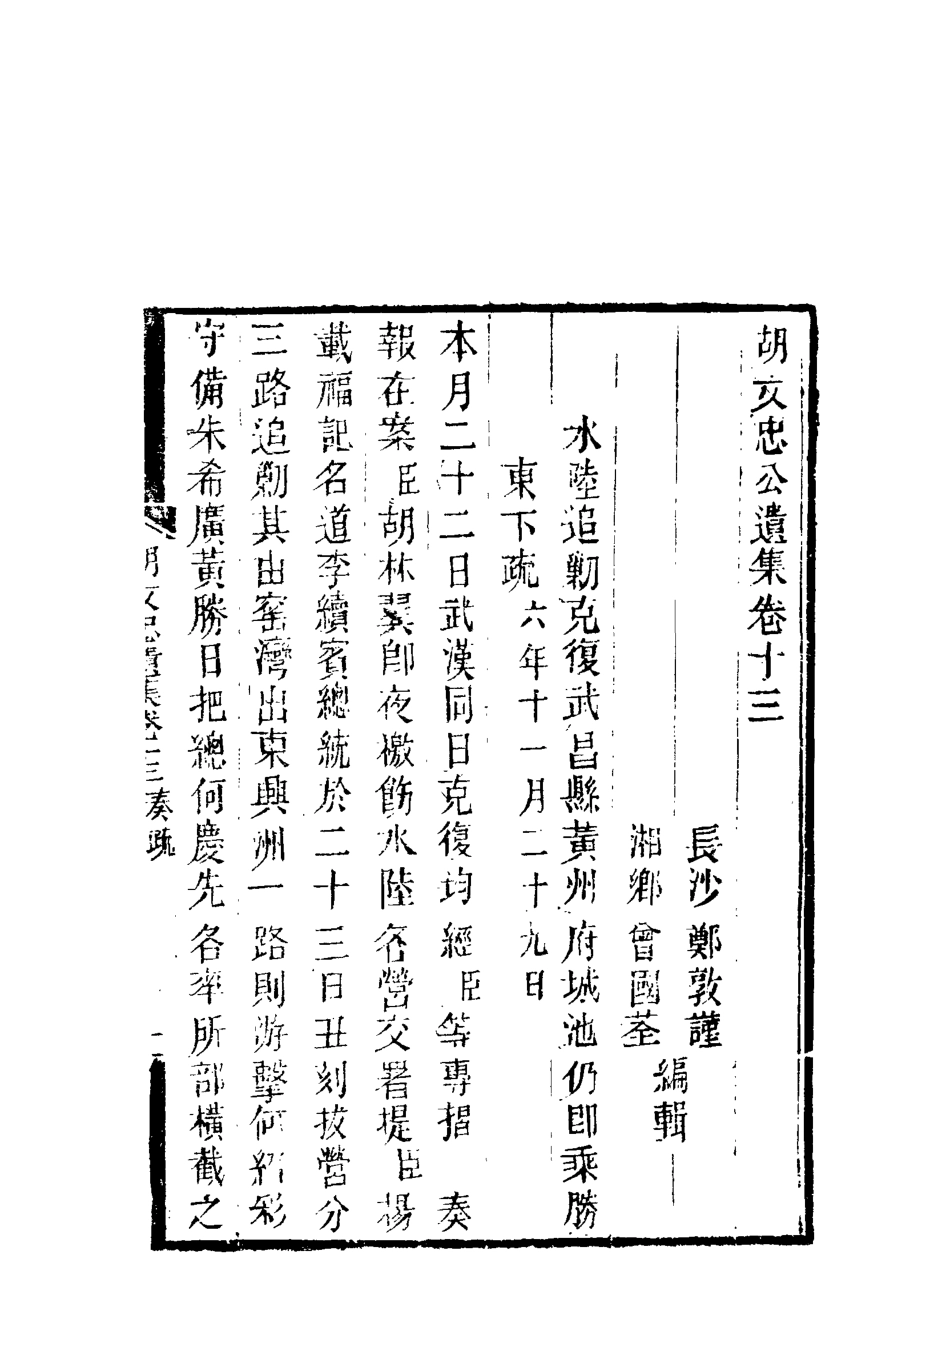 胡文忠公遺集卷十三
長沙鄭敦謹
湘鄉曾國荃
編輯
水陸追勦克復武昌縣黃州府城池仍即乘勝
東下疏 六年十一月二十九日
本月二十二日武漢同日克復均經臣等專摺 奏
報在案臣胡林翼即夜檄飭水陸各營交署提臣楊
載福記名道李續賓總統於二十三日丑刻拔營分
三路追勦其由窰灣出東興洲一路則游擊何紹彩
守備朱希廣黃勝日把總何慶先各率所部橫截之
胡文忠遺集卷十三奏疏 一